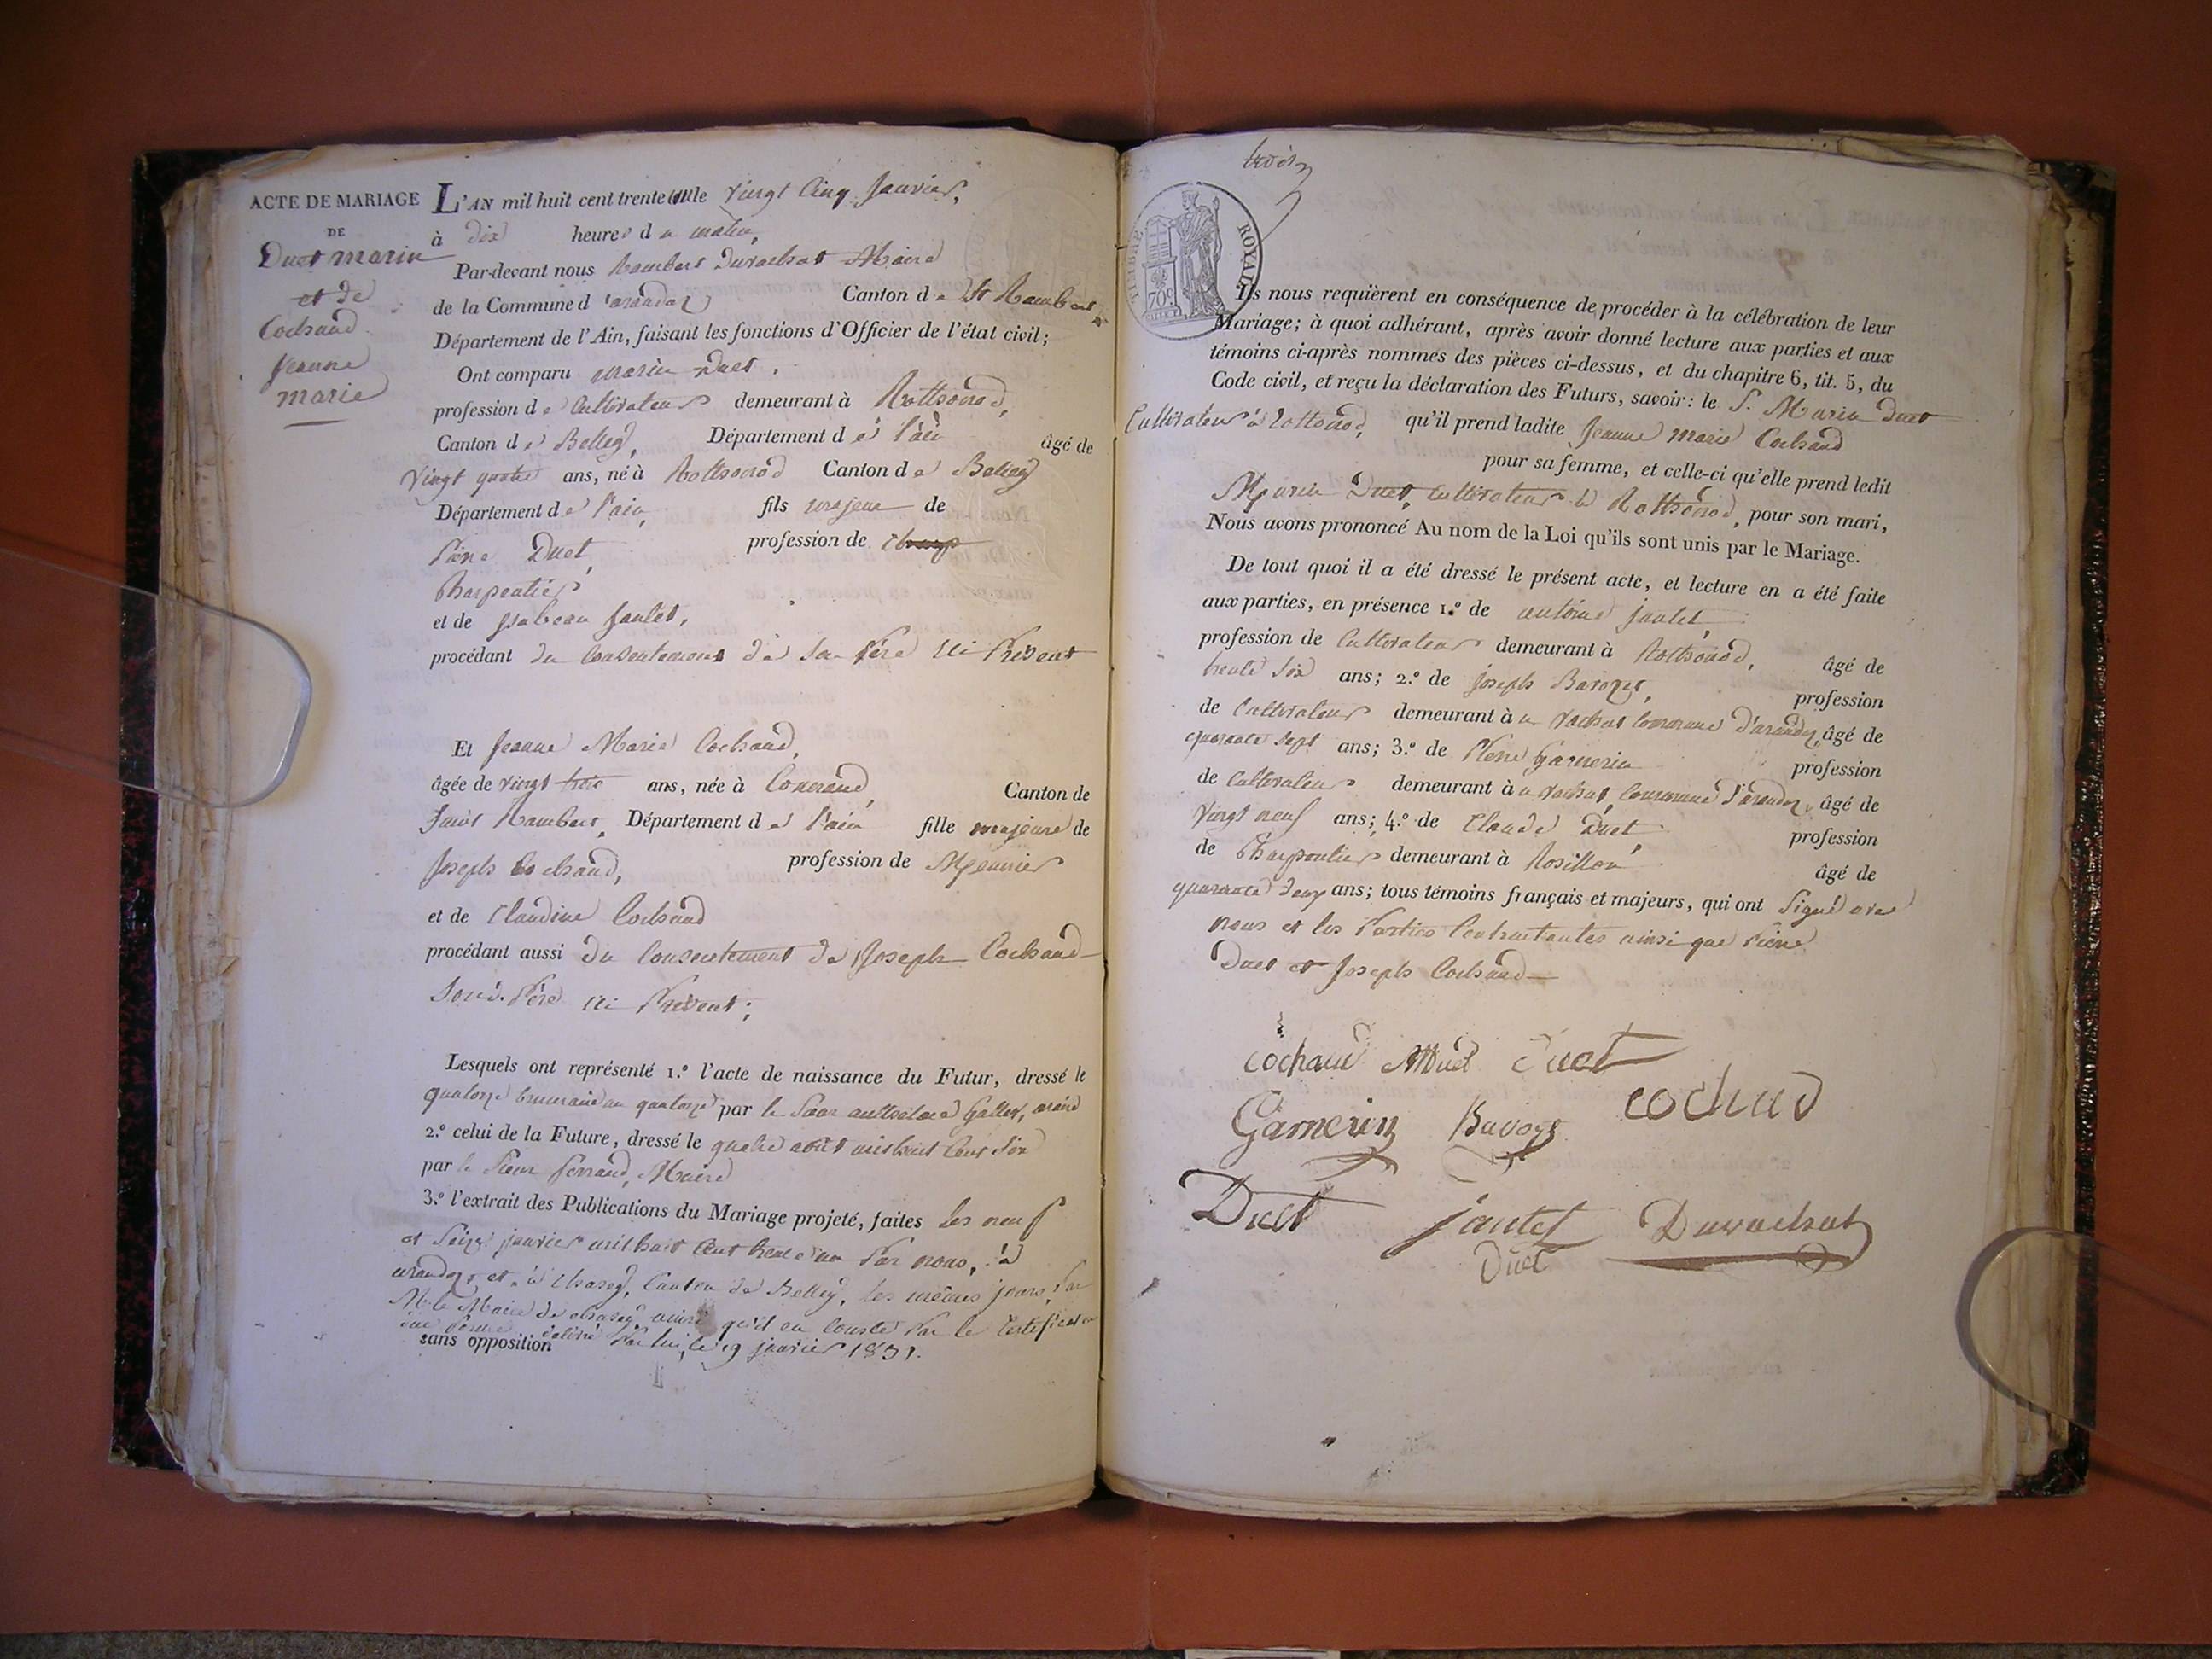 ACTE DE MARIAGE
DE
Duet marin
et de
Cochaud
Jeanne
marie
L'AN mil huit cent trente un le vingt cinq Janvier,
à dix heures du matin,
Par-devant nous Rambert Duvachat Maire
de la Commune d'arandaz Canton de St Rambert
Département de l'Ain, faisant les fonctions d'Officier de l'état civil;
Ont comparu marin Duet,
profession de Cultivateur demeurant à Rothonod,
Canton de Belley, Département de l'ain âgé de
vingt quatre ans, né à Rothonod Canton de Belley
Département de l'ain, fils majeur de
Pierre Duet, profession de
Charpentier
et de isabeau Jantet,
procédant du Consentement de son Père ici Présent
Et Jeanne Marie Cochaud,
âgée de vingt trois ans, née à Conerand, Canton de
Saint Rambert, Département de l'ain fille majeure de
Joseph Cochaud, profession de Meunier
et de Claudine Cochaud
procédant aussi du Consentement de Joseph Cochaud
Son Père ici Présent;
Lesquels ont représenté 1.º l'acte de naissance du Futur, dressé le
quatorze brumaire an quatorze par le Sieur anthelme Gallet, maire
2.º celui de la Future, dressé le quatre août mil huit Cent
par le Sieur Ferrand, Maire
3.º l'extrait des Publications du Mariage projeté, faites les neuf
et Seize janvier mil huit Cent trente un Par nous, à
arandaz, et à Chazey, Canton de Belley, les mêmes jours, Par
M. le Maire de chazey ainsi qu'il en Conste Par le Certificat en
due forme délivré Par lui, le 19 janvier 1831.
sans opposition
trois
TIMBRE ROYAL
70 c
Ils nous requièrent en conséquence de procéder à la célébration de leur
Mariage; à quoi adhérant, après avoir donné lecture aux parties et aux
témoins ci-après nommés des pièces ci-dessus, et du chapitre 6, tit. 5, du
Code civil, et reçu la déclaration des Futurs, savoir: le S. Marin Duet
Cultivateur à Rothonod, qu'il prend ladite Jeanne marie Cochaud
pour sa femme, et celle-ci qu'elle prend ledit
Marin Duet, Cultivateur à Rothonod, pour son mari,
Nous avons prononcé Au nom de la Loi qu'ils sont unis par le Mariage.
De tout quoi il a été dressé le présent acte, et lecture en a été faite
aux parties, en présence 1.º de antoine jantet,
profession de Cultivateur demeurant à Rothonod, âgé de
trente Six ans; 2.º de joseph Bavozet, profession
de Cultivateur demeurant à vachat Commune d'arandaz, âgé de
quarante sept ans; 3.º de Pierre Garnerin profession
de Cultivateur demeurant à vachat, Commune d'arandaz, âgé de
vingt neuf ans; 4.º de Claude Duet, profession
de Charpentier demeurant à Rosillon âgé de
quarante deux ans; tous témoins français et majeurs, qui ont Signé avec
nous et les Parties Contractantes ainsi que Pierre
Duet et Joseph Cochaud
cochaud MDuet Duet
Garnerin Bavozet cochaud
Duet jantet Duvachat
Duet